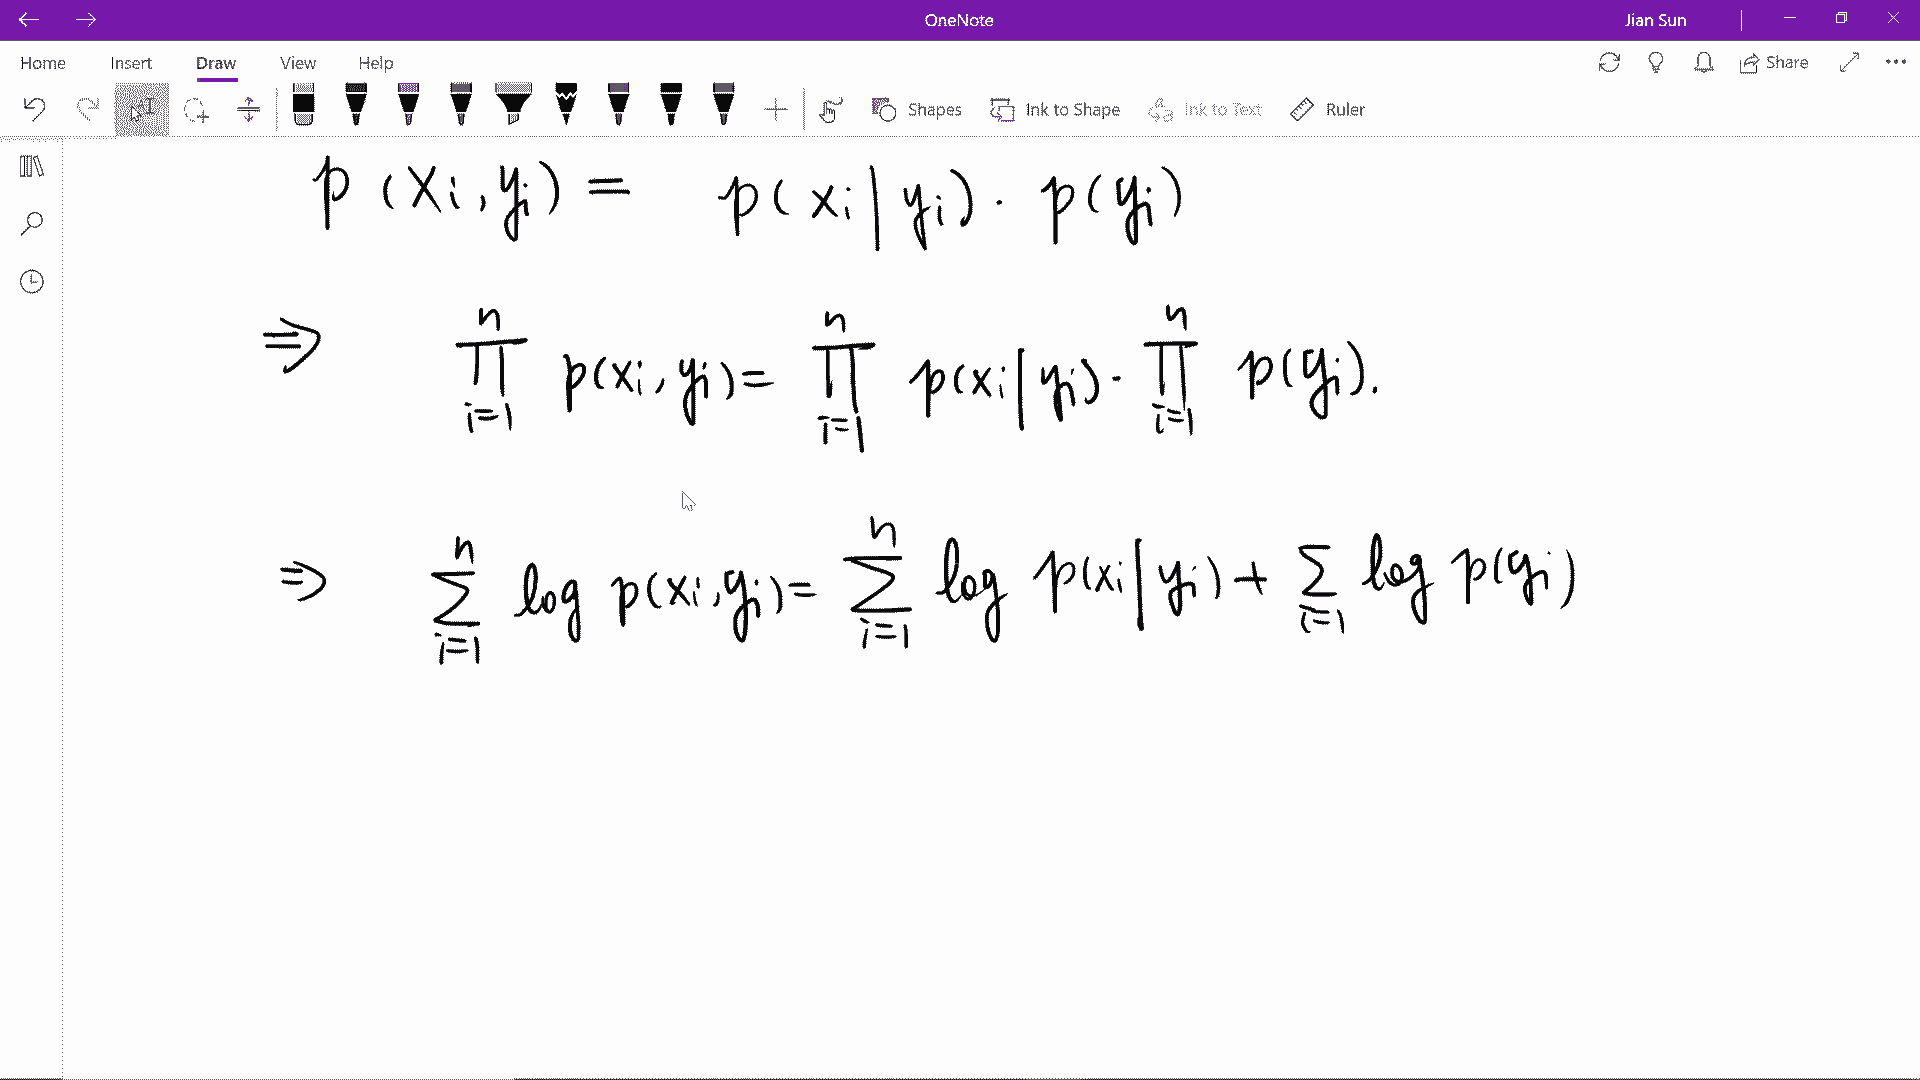 OneNote Jian Sun
Home Insert Draw View Help Share
Shapes Ink to Shape Ink to Text Ruler
p(xi, yi) = p(xi | yi) · p(yi)
⇒ ∏_{i=1}^{n} p(xi, yi) = ∏_{i=1}^{n} p(xi | yi) · ∏_{i=1}^{n} p(yi).
⇒ ∑_{i=1}^{n} log p(xi, yi) = ∑_{i=1}^{n} log p(xi | yi) + ∑_{i=1} log p(yi)